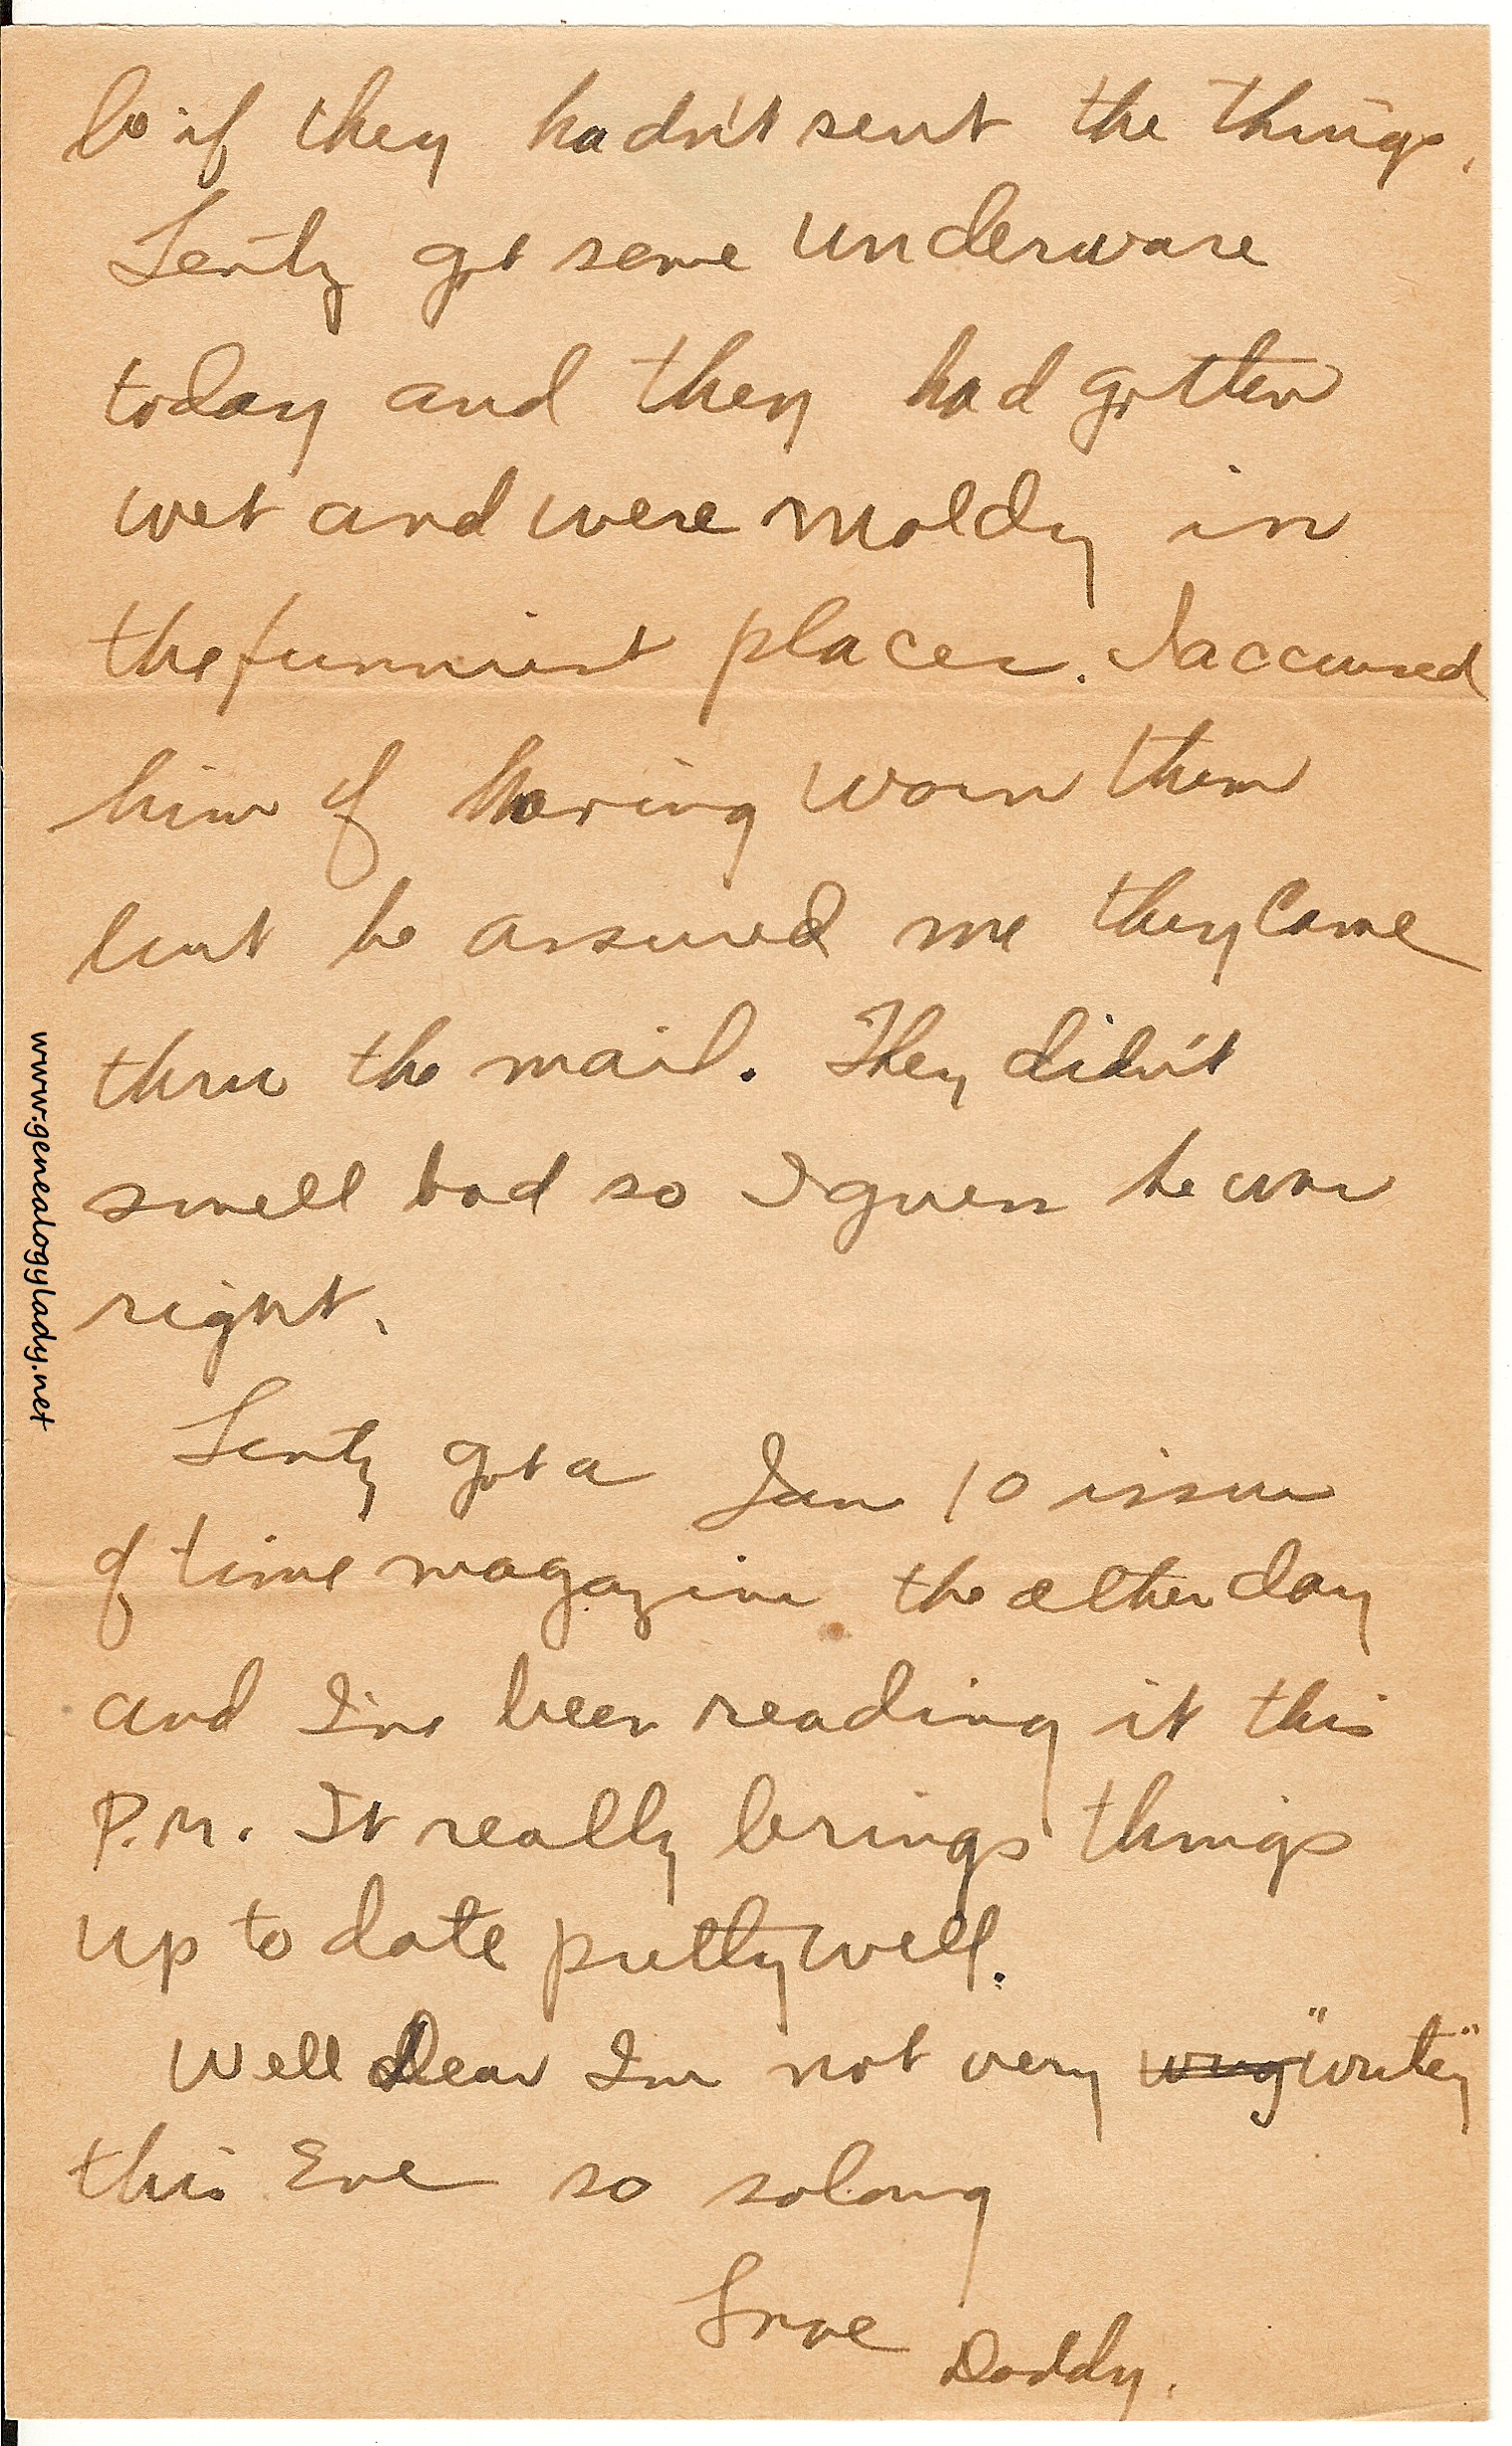 be if they hadn't sent the things.
Lentz got some underware
today and they had gotten
wet and were moldy in
the funniest places. I accused
him of having worn them
but he assured me they came
thru the mail. They didn't
smell bad so I guess he was
right.
Lentz got a Jan 10 issue
of time magazine the other day
and I've been reading it this
P.M. It really brings things
up to date pretty well.
Well Dear I'm not very "writey"
this Eve so solong
Love
Daddy.
www.genealogylady.net